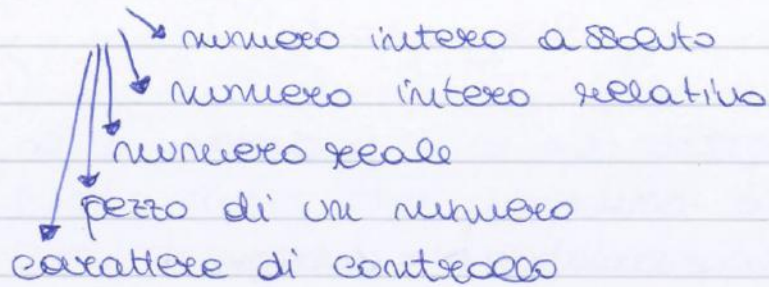 numero intero assoluto
numero intero relativo
numero reale
pezzo di un numero
carattere di controllo